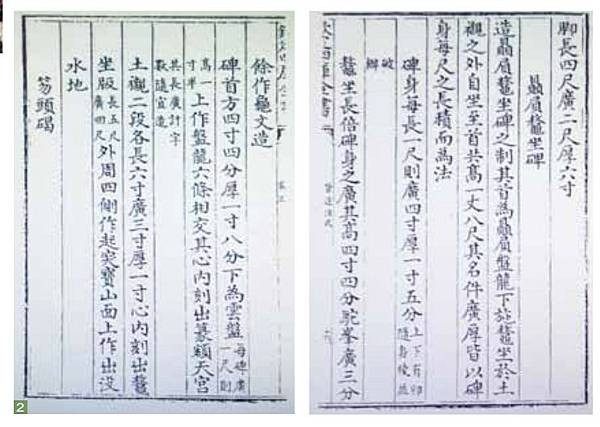 脚長四尺廣二尺厚六寸
贔屓鼇坐碑
造贔屓鼇坐碑之制其首為贔屓盤龍下施鼇坐於土
襯之外自坐至首共高一丈八尺其名件廣厚皆以碑
身每尺之長積而為法
碑身每長一尺則廣四寸厚一寸五分上下有卯隨身棱並
破瓣
鼇坐長倍碑身之廣其高四寸四分駝峯廣三分
營造法式
餘作龜文造
碑首方四寸四分厚一寸八分下為雲盤每碑廣一尺則
高一寸半上作盤龍六條相交其心内刻出篆額天宫
其長廣計字數隨宜造
土襯二段各長六寸廣三寸厚一寸心内刻出鼇
坐版長五尺廣四尺外周四側作起突寶山面上作出没
水地
笏頭碣
2